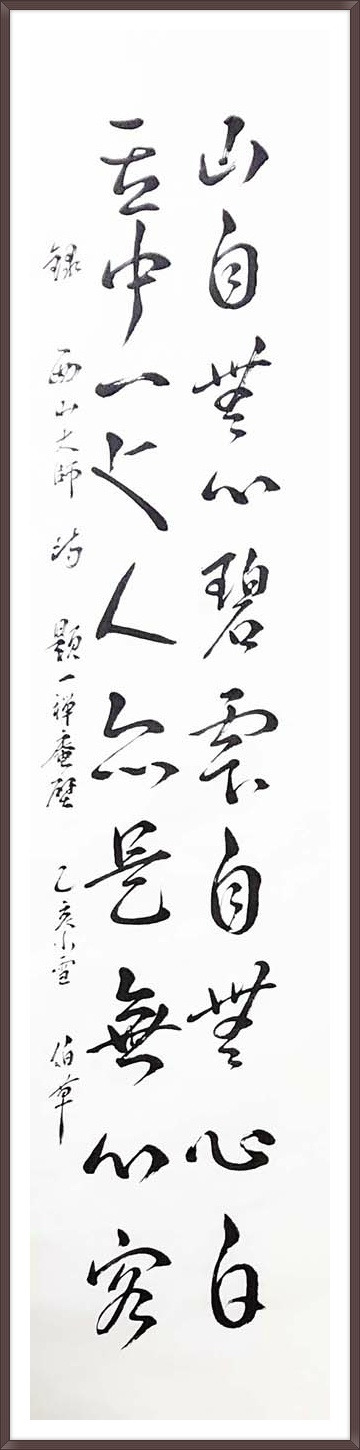 山自無心碧雲自無心白
其中一上人亦是無心客
錄 西山大師 詩 題一禪庵壁 乙亥小雪